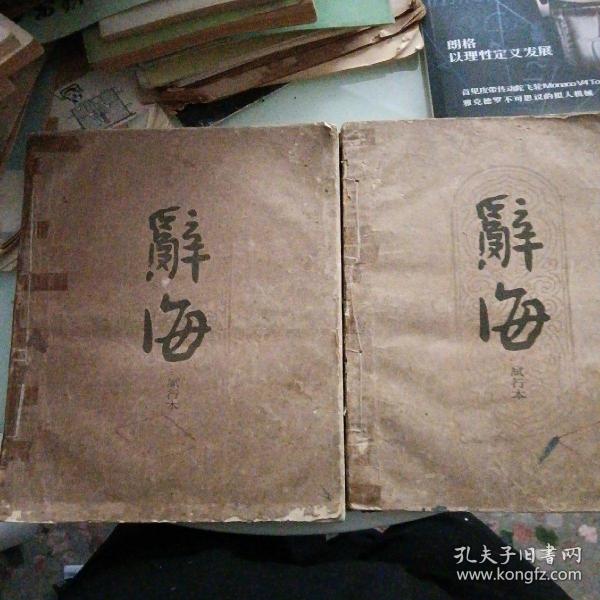 朗格
以理性定义发展
首里皮带传动陀飞轮Monaco V4 To
雅克德罗 不可思议的拟人机械
辭海
試行本
辭海
試行本
孔夫子旧书网
www.kongfz.com